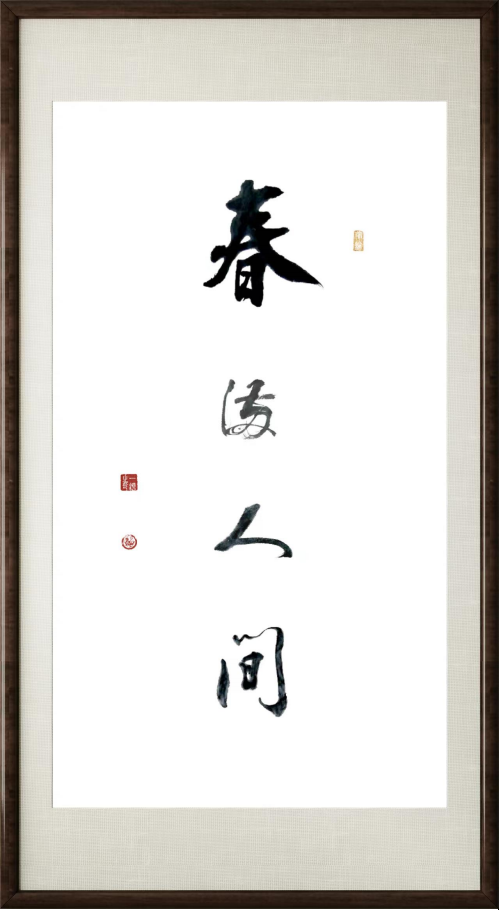 春满人间